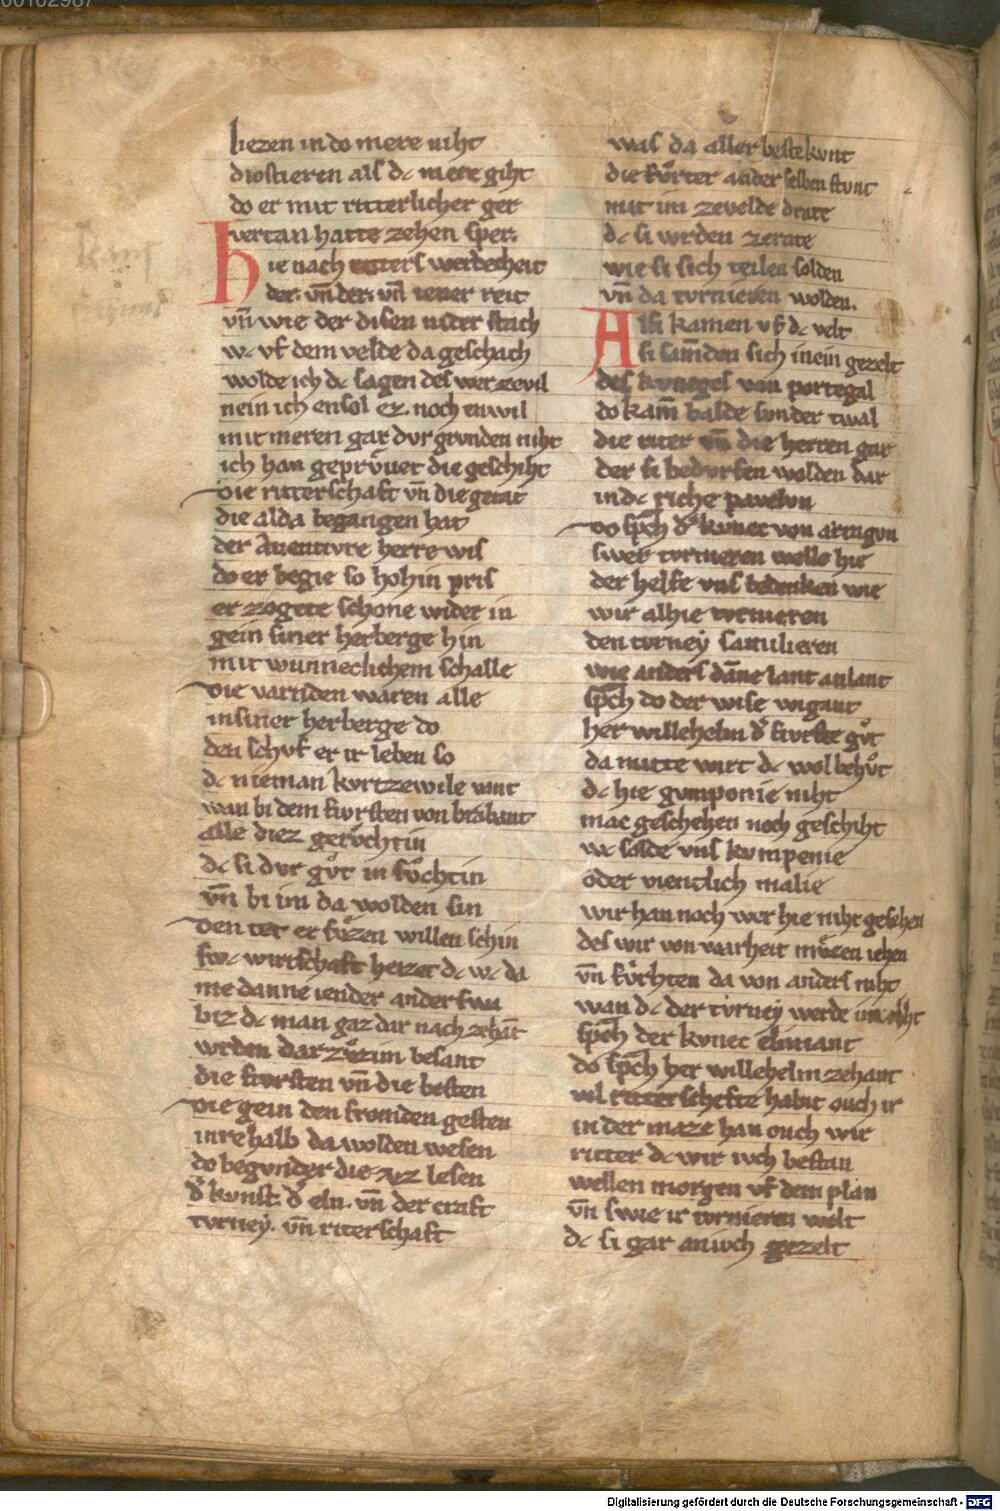 liezen in do mere niht
diostieren als dc mere giht
do er mit ritterlicher ger
vertan hatte zehen sper.
Hie nach ritters werdecheit
der. vn̄ der. vn̄ iener reit
vn̄ wie der disen nider stach
wc vf dem velde da geschach
wolde ich dc sagen des wer zevil
nein ich ensol ez. noch enwil
mit meren gar dvr grvnden niht
ich han geprv̊uet die geschiht
die ritterschaft vn̄ die getat
die alda begangen hat
der Auentvre herre wis
do er begie so hohin pris
er zogete schone wider in
gein siner herberge hin
mit wunneclichem schalle
die varnden waren alle
in siner herberge do
den schvf er ir leben so
dc nieman kvrtzewile vant
wan bi dem fvrsten von brabant
alle diez gerv̊chtin
dc si dvr gv̊t in sv̊chtin
vn̄ bi im da wolden sin
den tet er sv̊zen willen schin
swc wirtschaft heizet dc wc da
me danne iender anderswa
biz dc man gaz dar nach zehāt
wrden dar zv̊zim besant
die fvrsten vn̄ die besten
die gein den fromden gesten
inrehalb da wolden wesen
do begvnder die vz lesen
d̾ kvnst. d̾ eln. vn̄ der craft
tvrney. vn̄ riterschaft
was da aller beste kvnt
die fv̊rter ander selben stvnt
mit im zevelde drate
dc si wrden zerate
wie si sich teilen solden
vn̄ da tvrnieren wolden.
Alsi kamen vf dc velt
si samden sich in ein gezelt
des kvneges von portegal
do kam balde svnder twal
die riter vn̄ die herren gar
der si bedvrfen wolden dar
in dc riche pavelvn
do sp̄ch d̾ kvnec von arragvn
swer tvrnieren welle hie
der helfe vns bedenken wie
wir alhie tvrnieren
den tvrney samilieren
wie anders dāne lant an lant
sp̄ch do der wise wigant
her willehelm d̾ fvrste gv̊t
da mitte wirt dc wol behv̊t
dc hie gvmponie niht
mac geschehen noch geschiht
wc solde vns kvmpenie
oder vientlich malie
wir han noch wer hie niht gesehen
des wir von warheit mv̊zen iehen
vn̄ fv̊rhten da von anders niht
wan dc der tvrney werde
sp̄ch der kvnec elimant
do sp̄ch her willehelm zehant
vil ritterschefte habit ouch ir
in der maze han ouch wir
ritter dc wir iuch bestan
wellen morgen vf dem plan
vn̄ swie ir tvrnieren welt
dc si gar an iuch gezelt
Digitalisierung gefördert durch die Deutsche Forschungsgemeinschaft - DFG